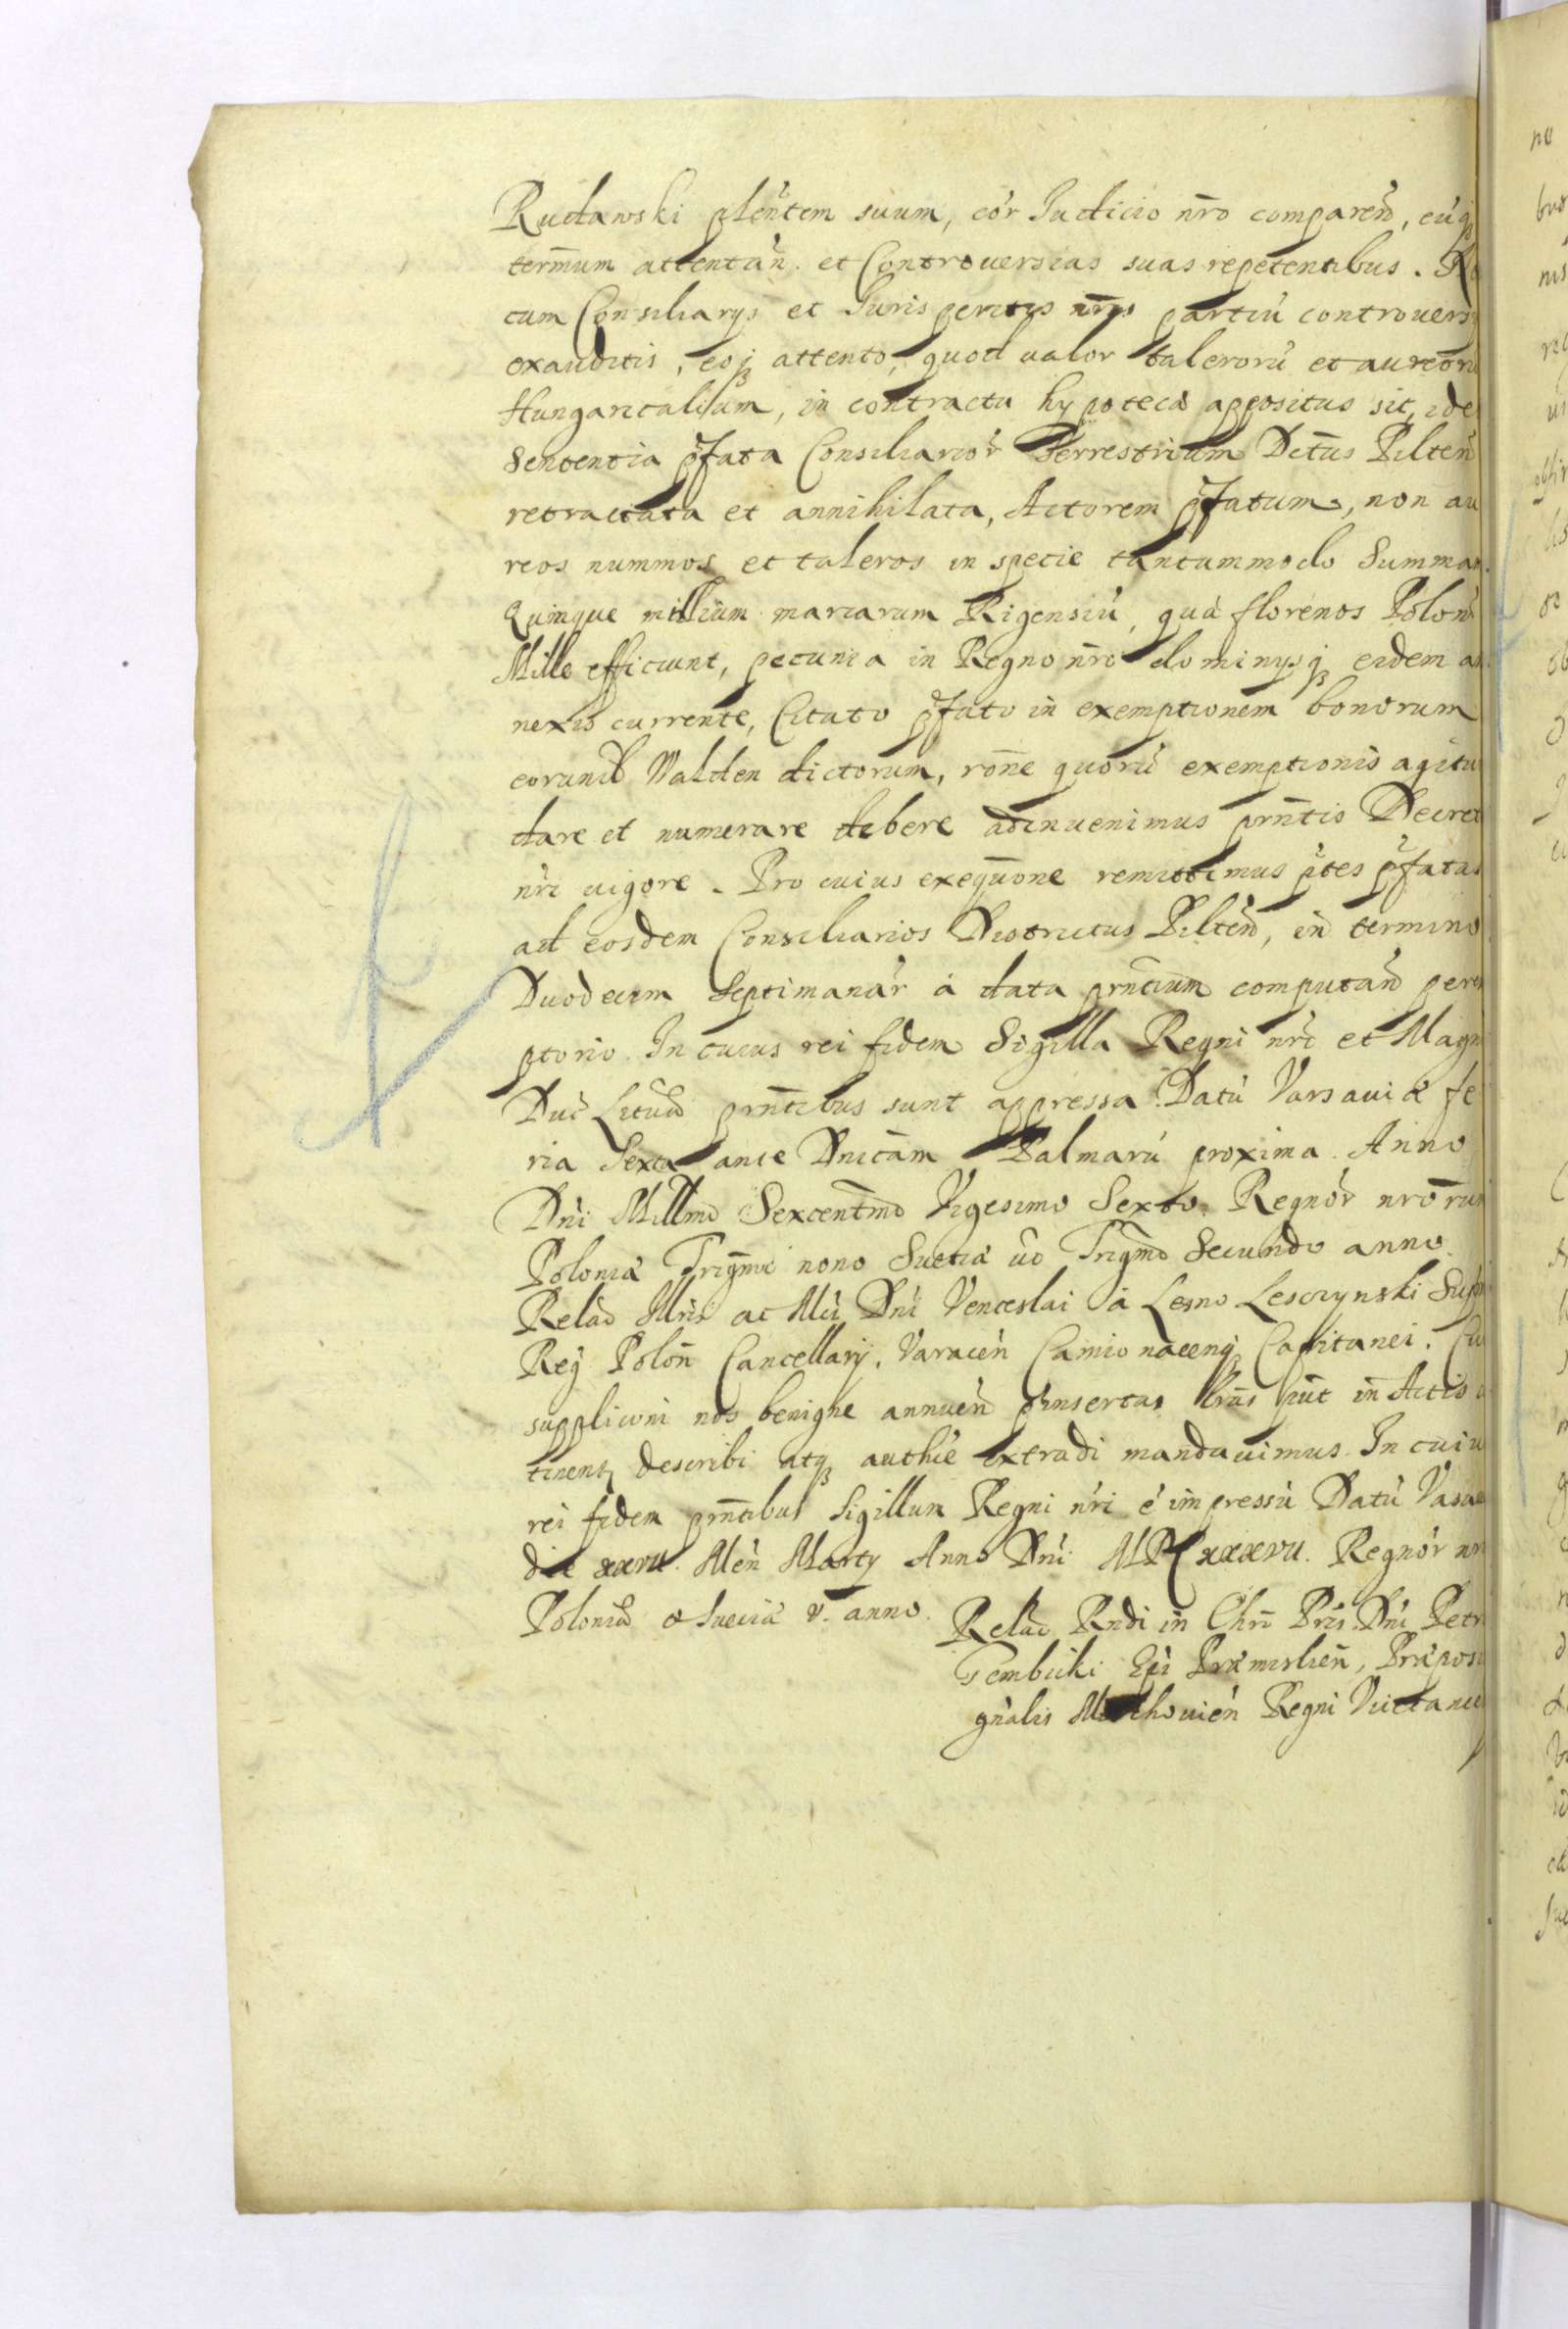 Rudawski plen̄tem suum, cor̄ Judicio nr̄o comparen̄, eūq
term̄um attentan̄. et Controuersias suas repetentibus.
cum Consiliarys et Juris peritis nr̄is partiū controuers
exauditis, eoq attento, quod ualor talerorū et aureorū
Hungaricalium, in contractu hypotecæ appositus sit, ide
Sententia p̄fata Consiliarior̄ Terrestrium Dctūs Pilten̄
retractata et annihilata, Actorem p̄fatum, non au
reos nummos et taleros in specie tantummodo Summam
Quinque millium marcarum Rigensiū, quæ florenos Polon̄
Mille efficiunt, pecunia in Regno nr̄o dominysq eidem an
nexis currente, Citato p̄fato in exemptionem bonorum
eorund Walden dictorum, rōne quorū exemptionis agitu
dare et numerare debere adinuenimus prn̄tis Decret
nr̄i uigore. Pro cuius exequōne remittimus p̄tes p̄fatas
ad eosdem Consiliarios Districtus Pilten̄, in termino
Duodecim Septimanar̄ à data prn̄tium computan̄ perem
ptorio. In cuius rei fidem Sigilla Regni nr̄i et Magn
Duc̄ Lituæ prn̄tibus sunt appressa. Datū Varsauiæ fe
ria Sexta ante Dnicam Palmarū proxima. Anno
Dni Millmo Sexcentmo Vigesimo Sexto. Regnor̄ nrōrum
Poloniæ Trigmi nono Suetiæ ūo Trigmo Secundo anno.
Relāo Illris ac Mci Dni Venceslai à Lesno Lesczynski Supr
Reg Polon̄ Cancellarij, Varacen̄ Camionacenq Capitanei. Cu
supplicōni nos benigne annuen̄ p̄insertas lr̄as put in Actis
tinent̄ describi atq authce extradi mandauimus. In cuiu
rei fidem prn̄tibus Sigillum Regni nr̄i ē impressū Datū Varsau
die xxvii. Men̄ Marty Anno Dni MDCxxxvii. Regnor̄ nr
Poloniæ & Sueciæ v. anno.
Relāo Rndi in Chrō Pris Dni Petri
Gembicki Epi Præmislien̄, Præposi
gnālis Miechouien̄ Regni Vicecance